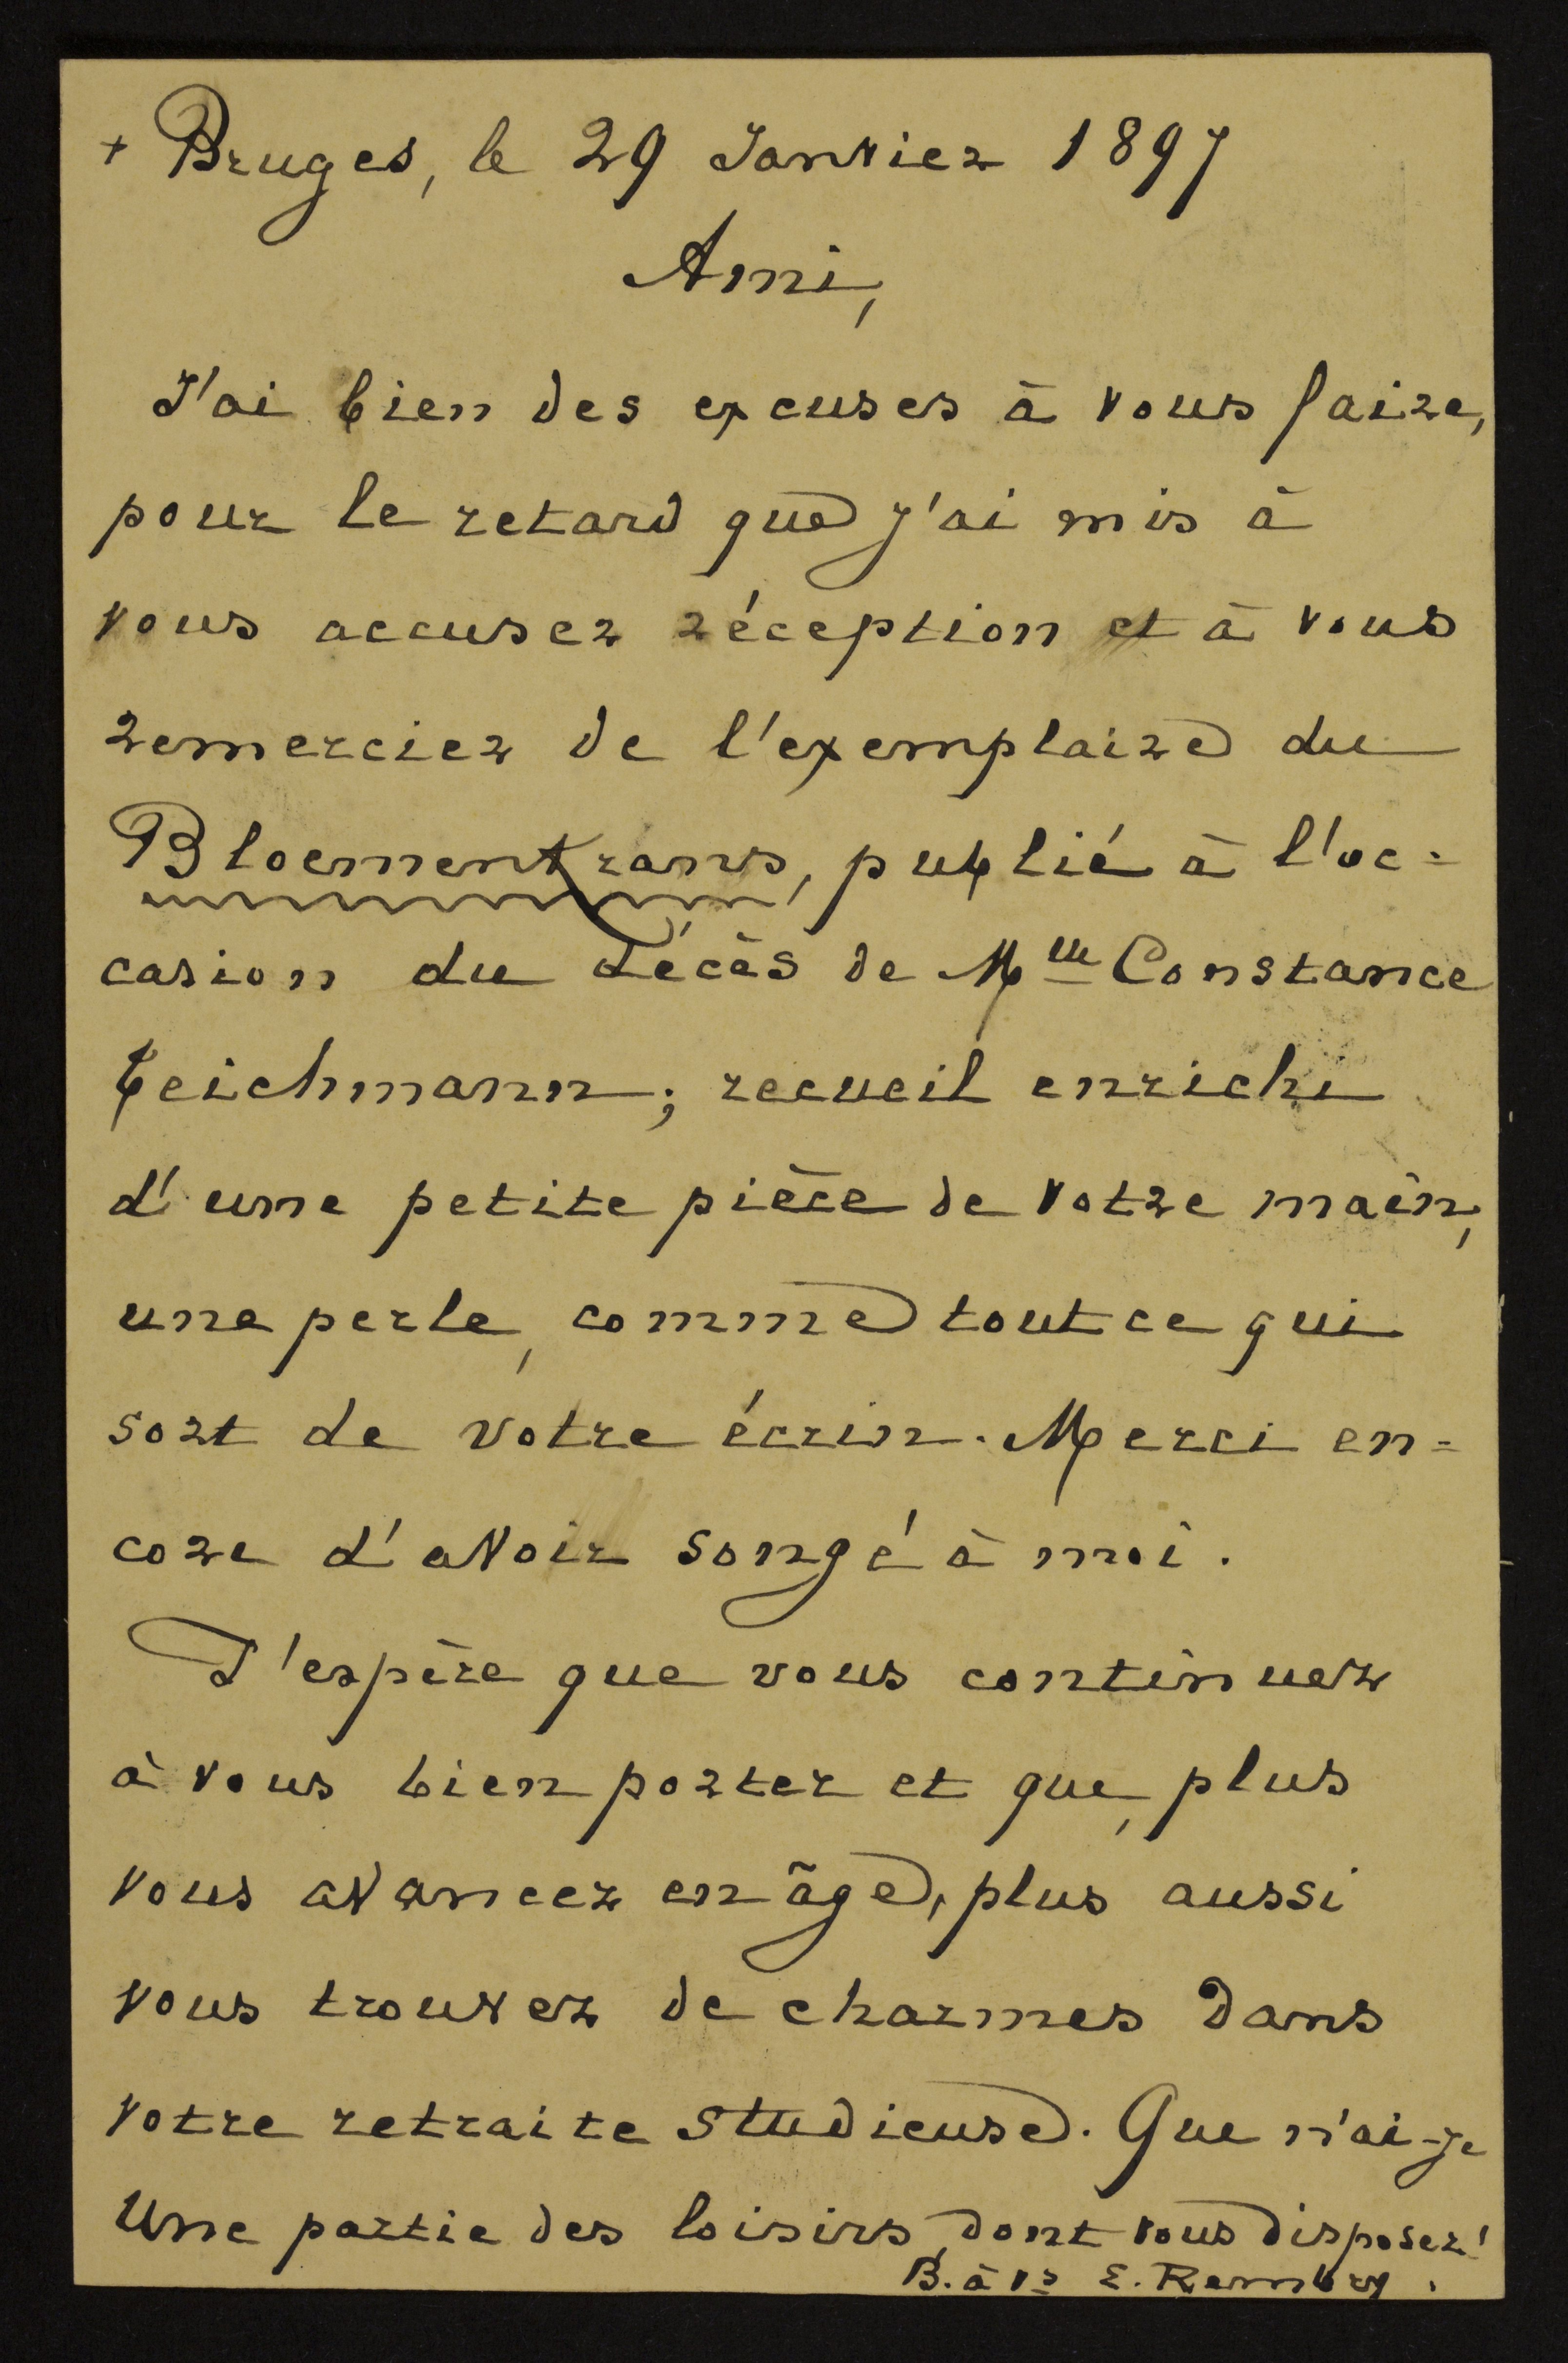 + Bruges, le 29 Janvier 1897
Ami,
J'ai bien des excuses à vous faire,
pour le retard que j'ai mis à
vous accuser réception et à vous
remercier de l'exemplaire du
Bloemenkrans, publié à l'oc=
casion du décès de Mlle Constance
Teichmann; recueil enrichi
d'une petite pièce de votre main,
une perle, comme tout ce qui
sort de votre écrin. Merci en=
core d'avoir songé à moi.
J'espère que vous continuez
à vous bien porter et que, plus
vous avancez en âge, plus aussi
vous trouvez de charmes dans
votre retraite studieuse. Que n'ai-je
Une partie des loisirs dont vous disposez!
B. à vs E. Rembry.